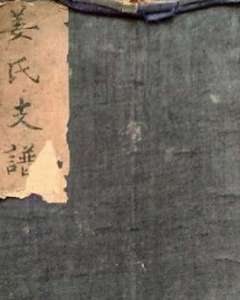 姜氏支譜